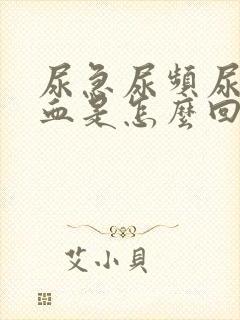 尿急尿頻尿
血是怎麼回
艾小貝